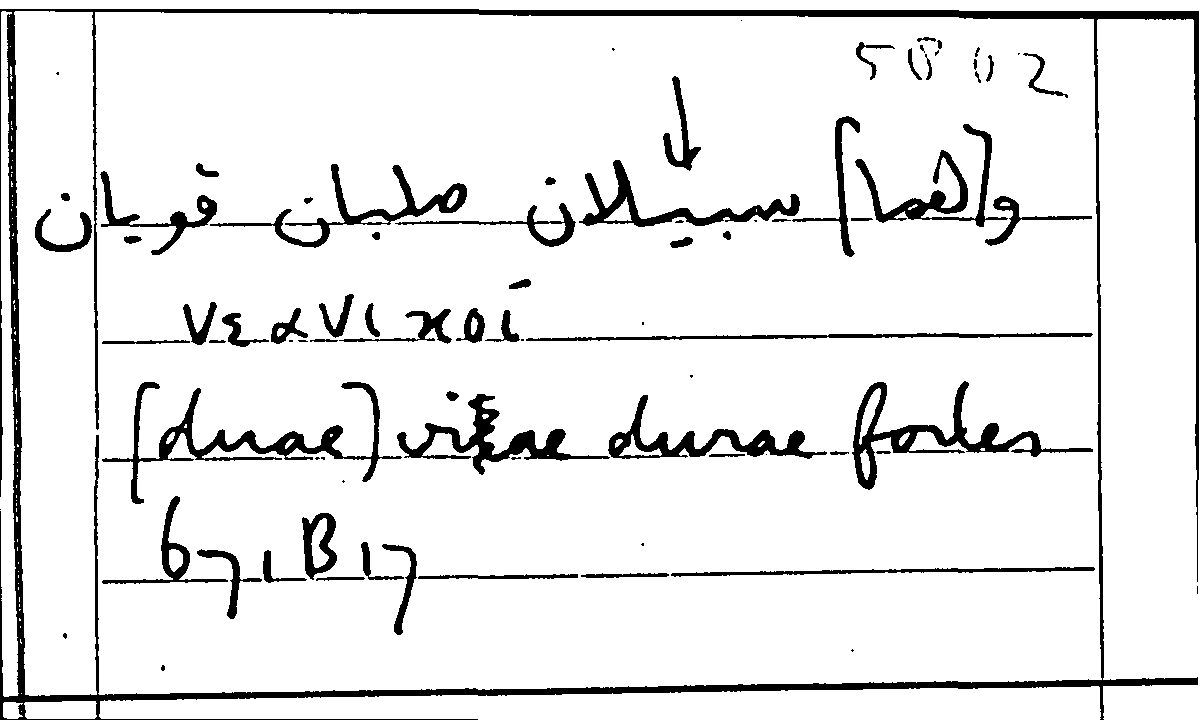 5802
و[هما] سبيلان صلبان قويان
νεανικοί
[duae] viae durae fortes
671 B 17